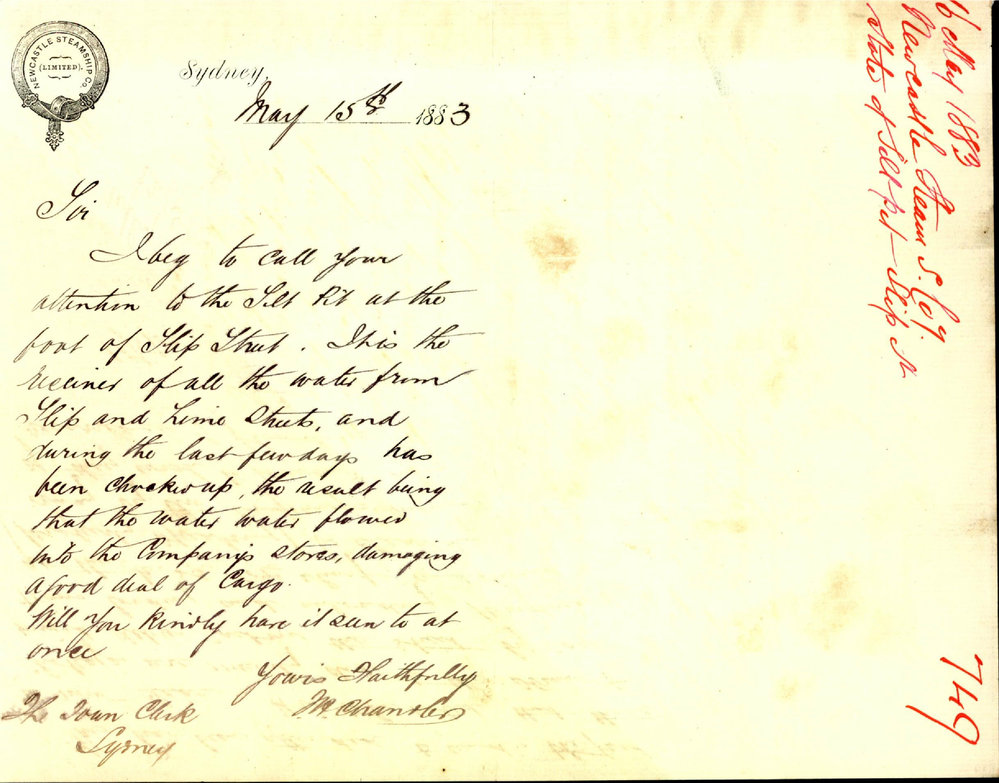 NEWCASTLE STEAMSHIP Co.
(LIMITED).
Sydney,
May 15th 1883
Sir
I beg to call your
attention to the Silt Pit at the
foot of Slip Street. This is the
receiver of all the water from
Slip and Lime Streets, and
during the last few days has
been chocked up, the result being
that the water water flowed
into the Company's stores, damaging
a good deal of Cargo.
Will you kindly have it seen to at
once
Yours Faithfully
Chandler
The Town Clerk
Sydney
16 May 1883
Newcastle Steam S. Coy
State of Silt pit - Slip St
749